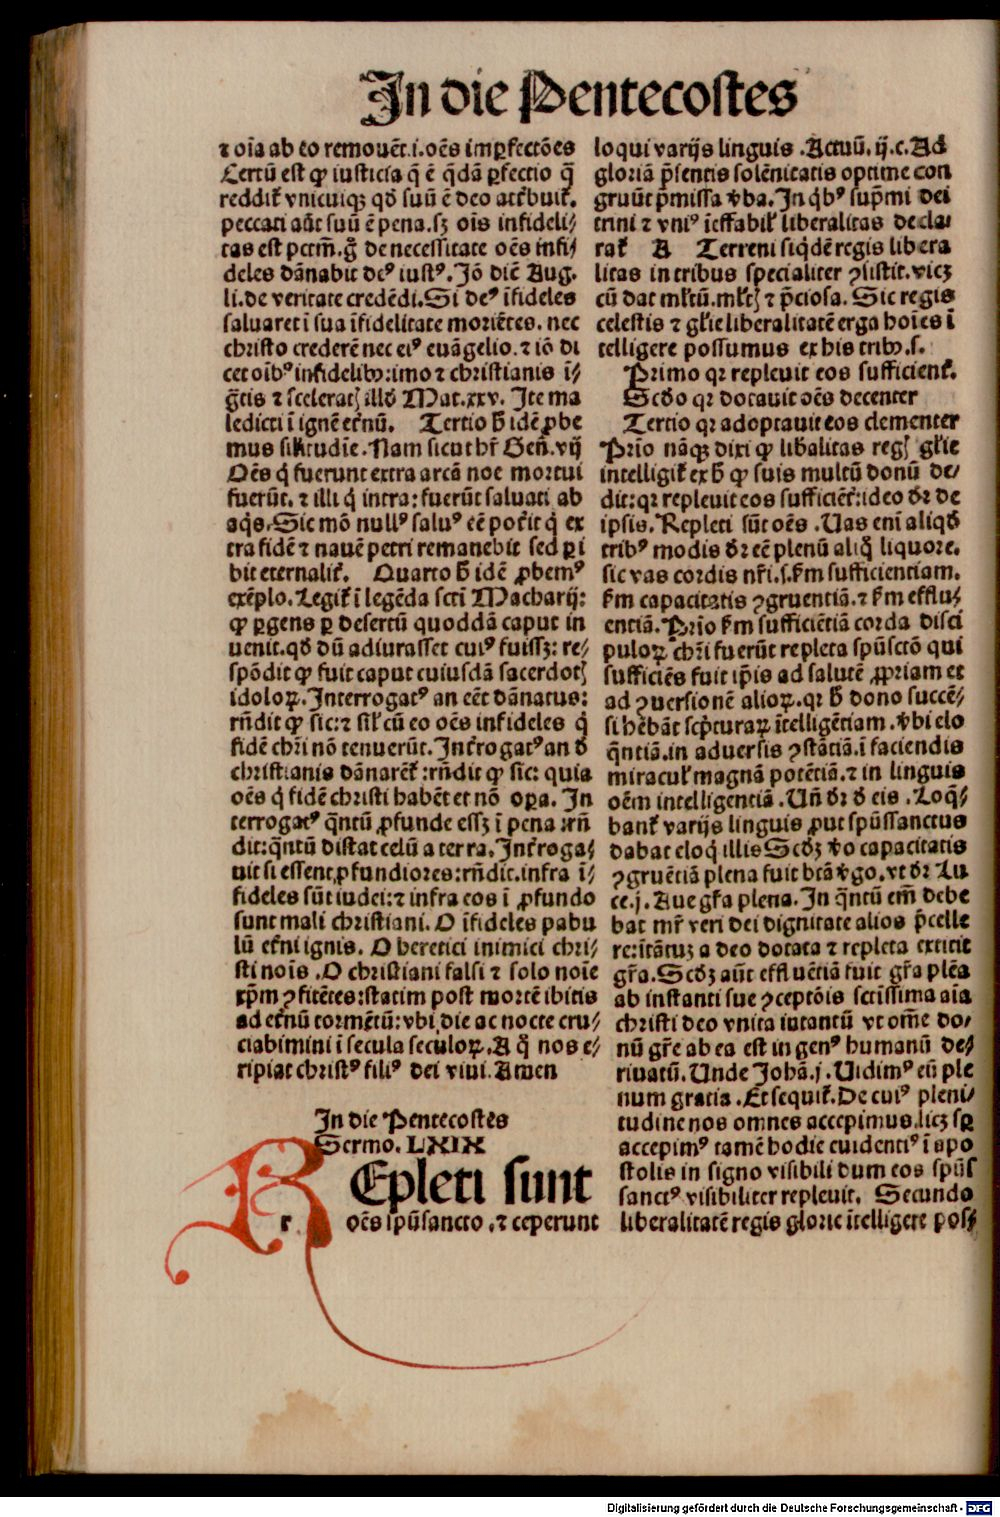 In die Pentecostes
⁊ oīa ab eo remouēt.i.oēs imꝑfectōes
Certū est ꝙ iusticia q̄ ē q̄dā ꝑfectio q̄
reddit̉ vnicuiqꝫ qd̓ suū ē deo attribuit̉.
peccati aūt suū ē pena.sꝫ oīs infideli⸗
tas est pctm̄.g̊ de necessitate oēs infi⸗
deles dānabit deꝰ iustꝰ.Jō diē Aug.
li.de veritate credēdi.Si deꝰ īfideles
saluaret ī sua īfidelitate moriētes. nec
christo crederē nec eiꝰ euāgelio.⁊ iō di
cet oībꝰ infidelibꝰ:imo ⁊ christianis ī⸗
g̃tis ⁊ sceleratꝭ illd̓ Mat.xxv. Jte ma
ledicti ī ignē et̓nū. Tertio h̓ idē ꝓbe
mus sil̓itudīe.Nam sicut hr̄ Geñ.vij
Oēs q̇ fuerunt extra arcā noe mortui
fuerūt. ⁊ illi q̇ intra: fuerūt saluati ab
aq̇s.Sic mō nullꝰ saluꝰ eē pot̓it q̇ ex
tra fidē ⁊ nauē petri remanebit sed ꝑi
bit eternalit̉. Quarto h̓ idē ꝓbemꝰ
exēplo.Legit̉ ī legēda scti Macharij:
ꝙ ꝑgens ꝑ desertū quoddā caput in
uenit.qd̓ dū adiurasset cuiꝰ fuissꝫ: re⸗
spōdit ꝙ fuit caput cuiusdā sacerdotꝭ
idoloꝝ.Jnterrogatꝰ an eēt dānatus:
rn̄dit ꝙ sic:⁊ sil̓ cū eo oēs infideles q̇
fidē chr̄i nō tenuerūt.Jnt̓rogatꝰ an d̓
christianis dānarēt̉ :rn̄dit ꝙ sic: quia
oēs q̇ fidē christi habēt et nō oꝑa. Jn
terrogatꝰ q̄ntū ꝓfunde essꝫ ī pena :rn̄
dit:q̄ntū distat celū a terra.Jnt̓roga⸗
uit si essent ꝓfundiores:rn̄dit.infra ī⸗
fideles sūt iudei:⁊ infra eos ī ꝓfundo
sunt mali christiani.O īfideles pabu
lū et̓ni ignis. O heretici inimici chri⸗
sti noīs .O christiani falsi ⁊ solo noīe
xp̄m ꝯfitētes:statim post mortē ibitis
ad et̓nū tormētū:vbi die ac nocte cru⸗
ciabimini ī secula seculoꝝ.A q̊ nos e⸗
ripiat christꝰ filiꝰ dei viui.Amen
In die Pentecostes
Sermo. LXIX
REpleti sunt
r oēs spūsancto .⁊ ceperunt
loqui varijs linguis .Actuū.ij.c.Ad
gloriā p̄sentis solēnitatis optime con
gruūt p̄missa v̓ba.Jn q̇bꝰ sup̄mi dei
trini ⁊ vniꝰ īeffabil̓ liberalitas decla⸗
rat̉ A Terreni siq̇dē regis libera
litas in tribus specialiter ꝯsistit.vicꝫ
cū dat ml̓tū.ml̓tꝭ ⁊ p̄ciosa. Sic regis
celestis ⁊ gl̓ie liberalitatē erga hoīes ī
telligere possumus ex his tribꝰ.s.
Primo qꝛ repleuit eos sufficient̉.
Scd̓o qꝛ dotauit oēs decenter
Tertio qꝛ adoptauit eos clementer
Prīo nāqꝫ dixi ꝙ lib̓alitas regꝭ gl̓ie
intelligit̉ ex h̓ ꝙ suis multū donū de⸗
dit:qꝛ repleuit eos sufficiēt̉:ideo d̓r de
ipsis.Repleti sūt oēs .Uas enī aliqd̓
tribꝰ modis d̓r eē plenū aliq̊ liquore.
sic vas cordis nr̄i.s.k̓m sufficientiam.
k̓m capacitatis ꝯgruentiā.⁊ k̓m efflu⸗
entiā.Prīo k̓m sufficiētiā corda disci
puloꝝ chr̄i fuerūt repleta spūsctō qui
sufficiēs fuit ip̄is ad salutē ꝓpriam et
ad ꝯuersionē alioꝝ.qꝛ h̓ dono succē⸗
si hēbāt sc̓pturaꝝ ītelligētiam .v̓bi elo
q̄ntiā.in aduersis ꝯstātiā.ī faciendis
miracul̓ magnā potētiā.⁊ in linguis
oēm intelligentiā .Uñ d̓r d̓ eis .Loq̄⸗
bant̉ varijs linguis ꝓut spūssanctus
dabat eloq̇ illis Scd̓ꝫ v̓o capacitatis
ꝯgruētiā plena fuit btā v̓go.vt d̓r Lu
ce.j. Aue gr̄a plena.Jn q̄ntū em̄ debe
bat mr̄ veri dei dignitate alios p̄celle
re:ītātuꝫ a deo dotata ⁊ repleta extitit
gr̄a.Scd̓ꝫ aūt effluētiā fuit gr̄a plēa
ab instanti sue ꝯceptōis sctissima aīa
christi deo vnita intantū vt om̄e do⸗
nū gr̄e ab ea est in genꝰ humanū de⸗
riuatū.Unde Johā.j.Uidimꝰ eū ple
num gratia .Et sequit̉.De cuiꝰ pleni⸗
tudine nos omnes accepimus.licꝫ sꝑ
accepimꝰ tamē hodie euidentiꝰ ī apo
stolis in signo visibili dum eos spūs
sanctꝰ visibiliter repleuit. Secundo
liberalitatē regis glorie ītelligere pos⸗
Digitalisierung gefördert durch die Deutsche Forschungsgemeinschaft - DFG